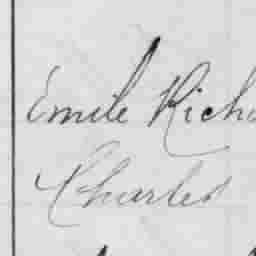 Emile Richa
Charles